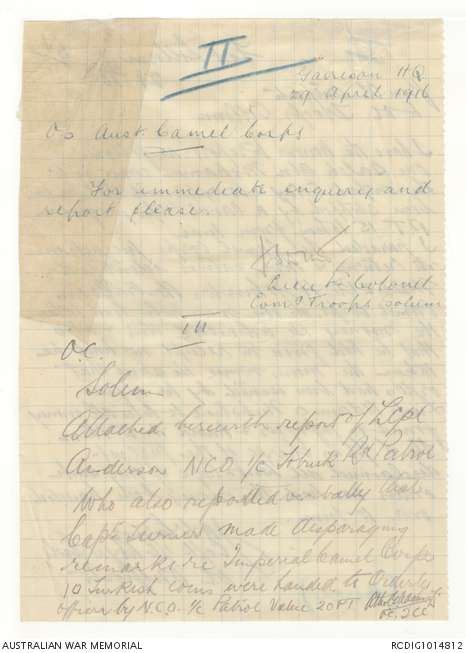 II
Garrison HQ
29 April 1916
Oc Aust. Camel Corps
For immediate enquiry and
report please.
Lieut Colonel
Comdg Troops Solum
III
O.C.
Solum
Attached herewith report of L Cpl
Anderson NCO i/c Tobruk Rd Patrol
who also reported verbally that
Capt Turner made disparaging
remarks re Imperial Camel Corps
10 Turkish coins were handed to Orderly
officer by N.C.O. i/c Patrol Value 20 PT
ICC
AUSTRALIAN WAR MEMORIAL
RCDIG1014812